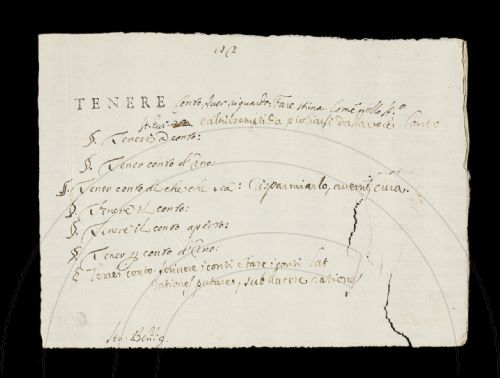 TENERE Conto, aver riguardo, fare stima
ed altri esempli da pigliarsi dalla voce Conto
§. Tenere a conto:
§. Tener conto d'uno:
§. Tener conto di che che sia: Risparmiarlo, avervi cura.
§. Tenere il conto:
§. Tenere il conto aperto:
§. Tener conto d'uno:
§ Tener conto: scrivere i conti e fare i conti Lat
rationes putare, subducere rationes